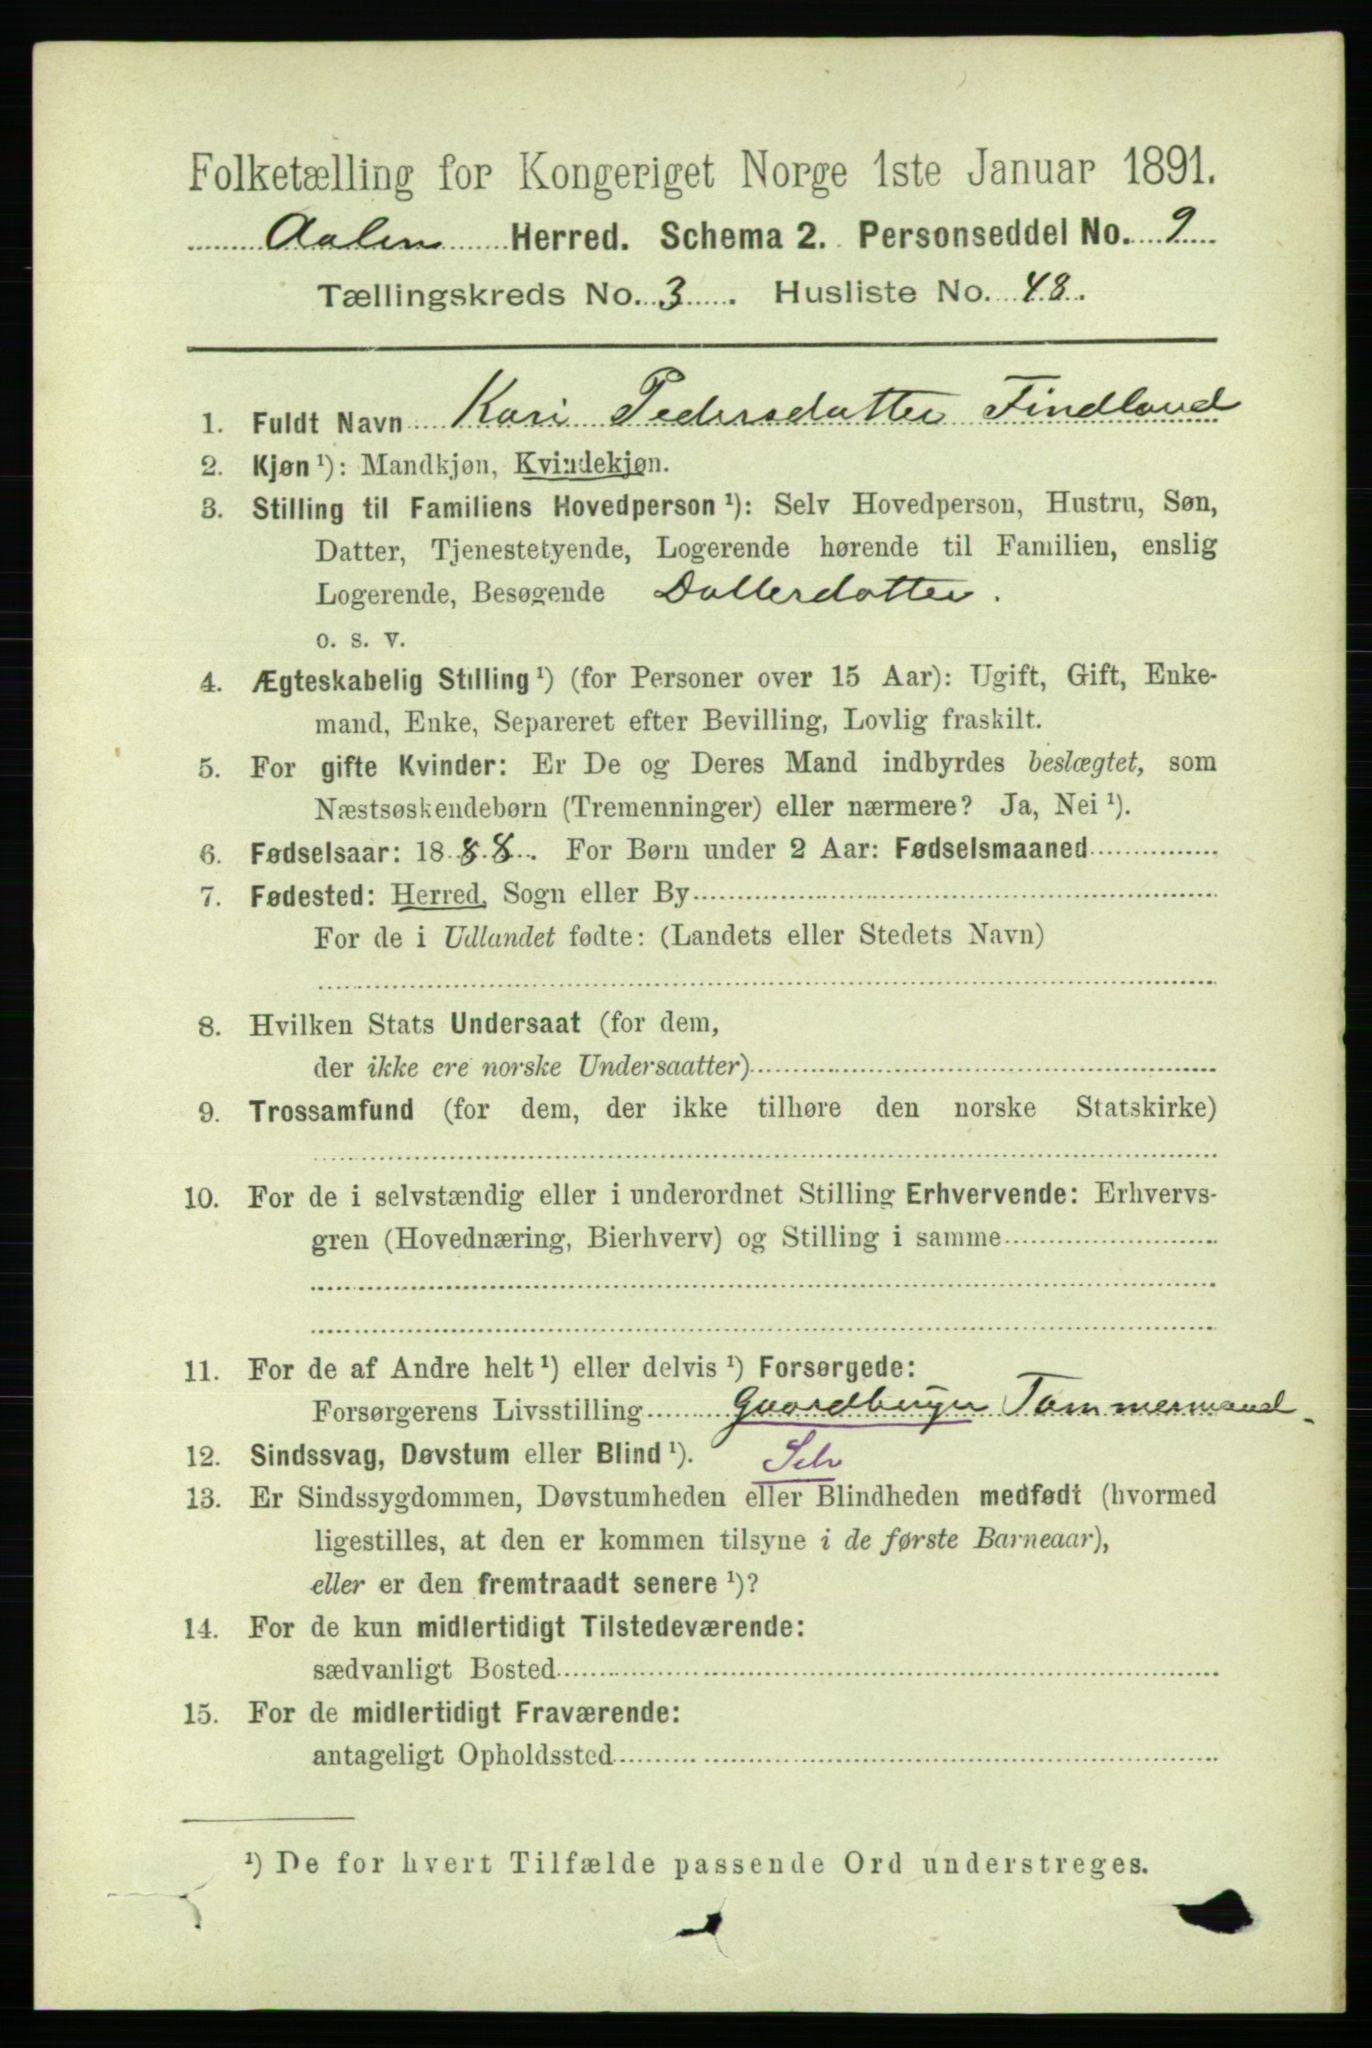 Folketælling for Kongeriget Norge 1ste Januar 1891.
Aalen Herred. Schema 2. Personseddel No. 9
Tællingskreds No. 3. Husliste No. 48.
1. Fuldt Navn Kari Pedersdatter Findland
2. Kjøn ¹): Mandkjøn, Kvindekjøn.
3. Stilling til Familiens Hovedperson ¹): Selv Hovedperson, Hustru, Søn,
Datter, Tjenestetyende, Logerende hørende til Familien, enslig
Logerende, Besøgende Datterdatter.
o. s. v.
4. Ægteskabelig Stilling ¹) (for Personer over 15 Aar): Ugift, Gift, Enke-
mand, Enke, Separeret efter Bevilling, Lovlig fraskilt.
5. For gifte Kvinder: Er De og Deres Mand indbyrdes beslægtet, som
Næstsøskendebørn (Tremenninger) eller nærmere? Ja, Nei ¹).
6. Fødselsaar: 1888. For Børn under 2 Aar: Fødselsmaaned
7. Fødested: Herred, Sogn eller By
For de i Udlandet fødte: (Landets eller Stedets Navn)
8. Hvilken Stats Undersaat (for dem,
der ikke ere norske Undersaatter)
9. Trossamfund (for dem, der ikke tilhøre den norske Statskirke)
10. For de i selvstændig eller i underordnet Stilling Erhvervende: Erhvervs-
gren (Hovednæring, Bierhverv) og Stilling i samme
11. For de af Andre helt ¹) eller delvis ¹) Forsørgede:
Forsørgerens Livsstilling Gaardbruger Tømmermand
12. Sindssvag, Døvstum eller Blind ¹). Selv
13. Er Sindssygdommen, Døvstumheden eller Blindheden medfødt (hvormed
ligestilles, at den er kommen tilsyne i de første Barneaar),
eller er den fremtraadt senere ¹)?
14. For de kun midlertidigt Tilstedeværende:
sædvanligt Bosted
15. For de midlertidigt Fraværende:
antageligt Opholdssted
¹) De for hvert Tilfælde passende Ord understreges.